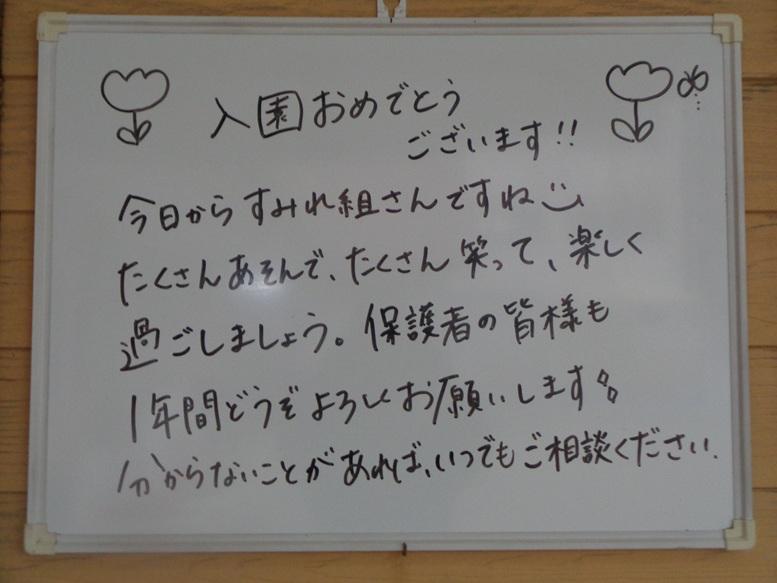 入園おめでとう
ございます!!
今日からすみれ組さんですね
たくさんあそんで、たくさん笑って、楽しく
過ごしましょう。保護者の皆様も
1年間どうぞよろしくお願いします
分からないことがあれば、いつでもご相談ください.